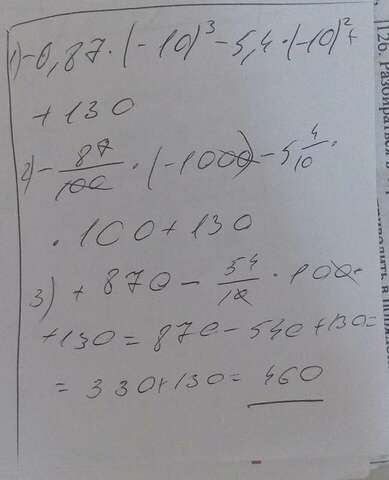 1) -0,87 · (-10)³ - 5,4 · (-10)² +
+ 130
2) - 87/100 · (-1000) - 5 4/10 ·
· 100 + 130
3) + 870 - 54/10 · 100 +
+ 130 = 870 - 540 + 130 =
= 330 + 130 = 460